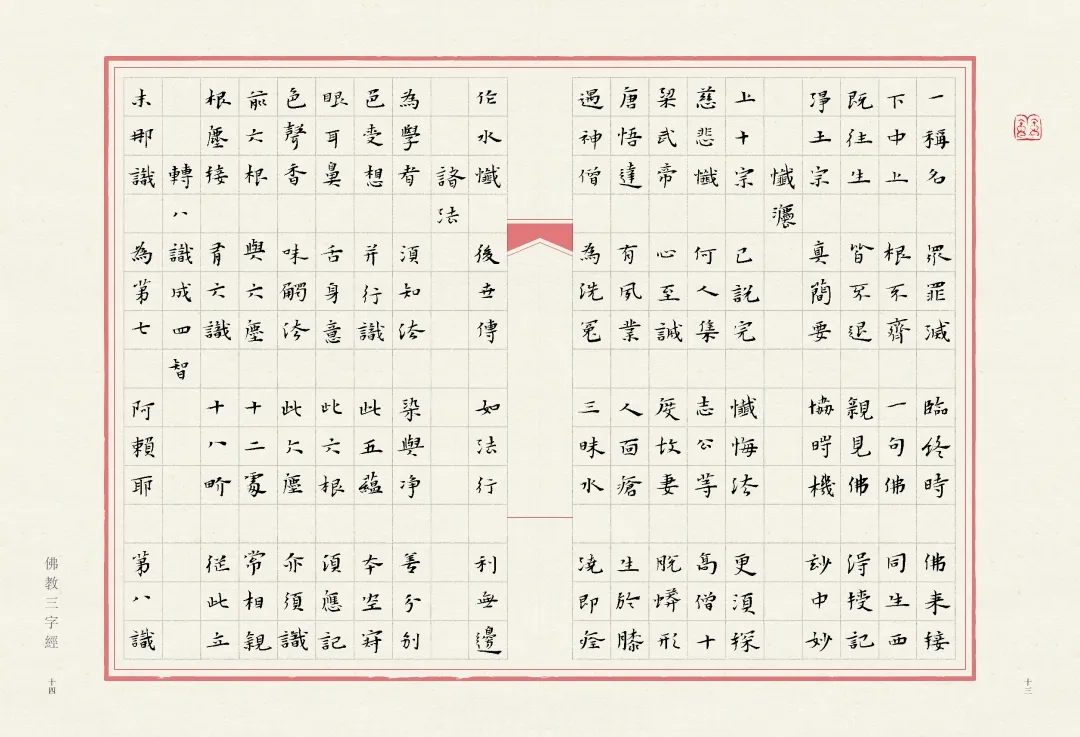 一稱名 眾罪滅 臨終時 佛來接
下中上 根不齊 一句佛 同生西
既往生 皆不退 親見佛 得授記
淨土宗 真簡要 協時機 妙中妙
懺灋
上十宗 已說完 懺悔法 更須探
慈悲懺 何人集 志公等 高僧十
梁武帝 心至誠 度故妻 脫蟒形
唐悟達 有夙業 人面瘡 生於膝
遇神僧 為洗冤 三昧水 澆即痊
十三
作水懺 後世傳 如法行 利無邊
諸法
為學者 須知法 染與净 善分別
色受想 并行識 此五蘊 本空寂
眼耳鼻 舌身意 此六根 須應記
色聲香 味觸法 此六塵 亦須識
前六根 與六塵 十二處 常相親
根塵接 有六識 十八界 從此立
轉八識成四智
末那識 為第七 阿賴耶 第八識
佛教三字經
十四